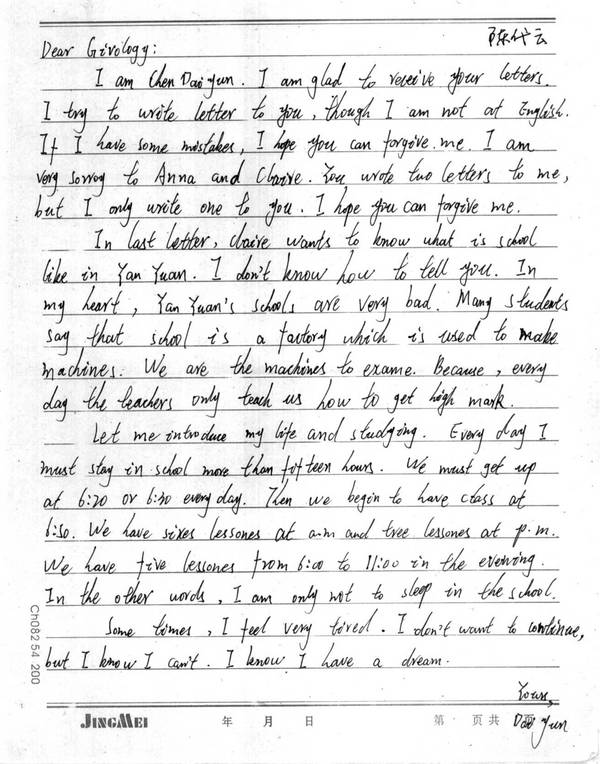 陈代云
Dear Givology:
I am Chen Dai Yun. I am glad to receive your letters.
I try to write letter to you, though I am not at English.
If I have some mistakes, I hope you can forgive me. I am
very sorroy to Anna and Claire. You wrote two letters to me,
but I only write one to you. I hope you can forgive me.
In last letter, claire wants to know what is school
like in Yan Yuan. I don't know how to tell you. In
my heart, Yan Yuan's schools are very bad. Many students
say that school is a factory which is used to make
machines. We are the machines to exame. Because, every
day the teachers only teach us how to get high mark.
Let me introduce my life and studying. Every day I
must stay in school more than fifteen hours. We must get up
at 6:20 or 6:30 every day. Then we begin to have class at
6:50. We have sixes lessones at a.m and tree lessones at p.m.
We have five lessones from 6:00 to 11:00 in the evening.
In the other words, I am only not to sleep in the school.
Some times, I feel very tired. I don't want to continue,
but I know I can't. I know I have a dream.
Yours,
Dai Yun
JINGMEI 年 月 日 第 页 共 页
Ch082 54 200